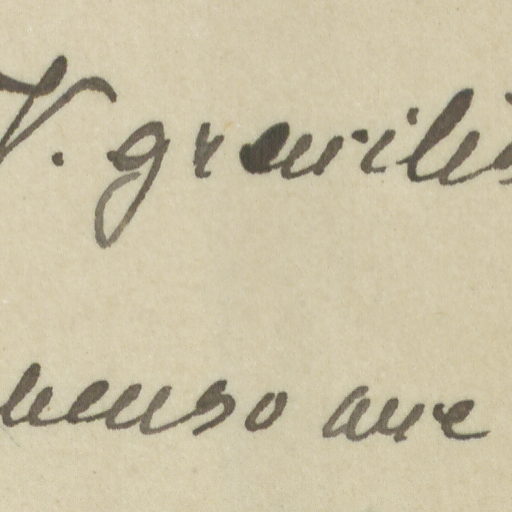 V. gracilis
benso auc